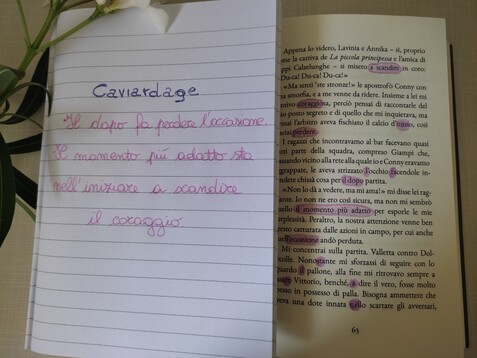 Caviardage
Il dopo fa perdere l'occasione.
Il momento più adatto sta
nell'iniziare a scandire
il coraggio
Appena lo videro, Lavinia e Annika – sì, proprio
me la cattiva de La piccola principessa e l'amica di
ppi Calzelunghe – si misero a scandire in coro:
Du-ca! Du-ca!»
«Ma senti 'ste stronze!» le apostrofò Conny con
na smorfia, e a me venne da ridere. Insieme a lei mi
ntivo coraggiosa, perciò pensai di raccontarle del
o posto segreto e di quello che mi inquietava, ma
mai l'arbitro aveva fischiato il calcio d'inizio, così
sciai perdere.
I ragazzi che incontravamo al bar facevano quasi
mi parte della squadra, compreso Giampi che,
assando vicino alla rete alla quale io e Conny eravamo
grappate, le aveva strizzato l'occhio facendole in-
ndere chissà cosa per il dopo partita.
«Non lo dà a vedere, ma mi ama!» mi disse lei rag-
ante. Io non ne ero così sicura, ma non mi sembrò
ello il momento più adatto per esporle le mie
rplessità. Peraltro, la nostra attenzione venne ben
esto catturata dalle azioni in campo, per cui anche
ell'occasione andò perduta.
Mi concentrai sulla partita. Valletta contro Dol-
colle. Nonostante mi sforzassi di seguire con lo
uardo il pallone, alla fine mi ritrovavo sempre a
Vittorio, benché, a dire il vero, fosse molto
esso in possesso di palla. Bisogna ammettere che
eva una dote innata nello scartare gli avversari,
63